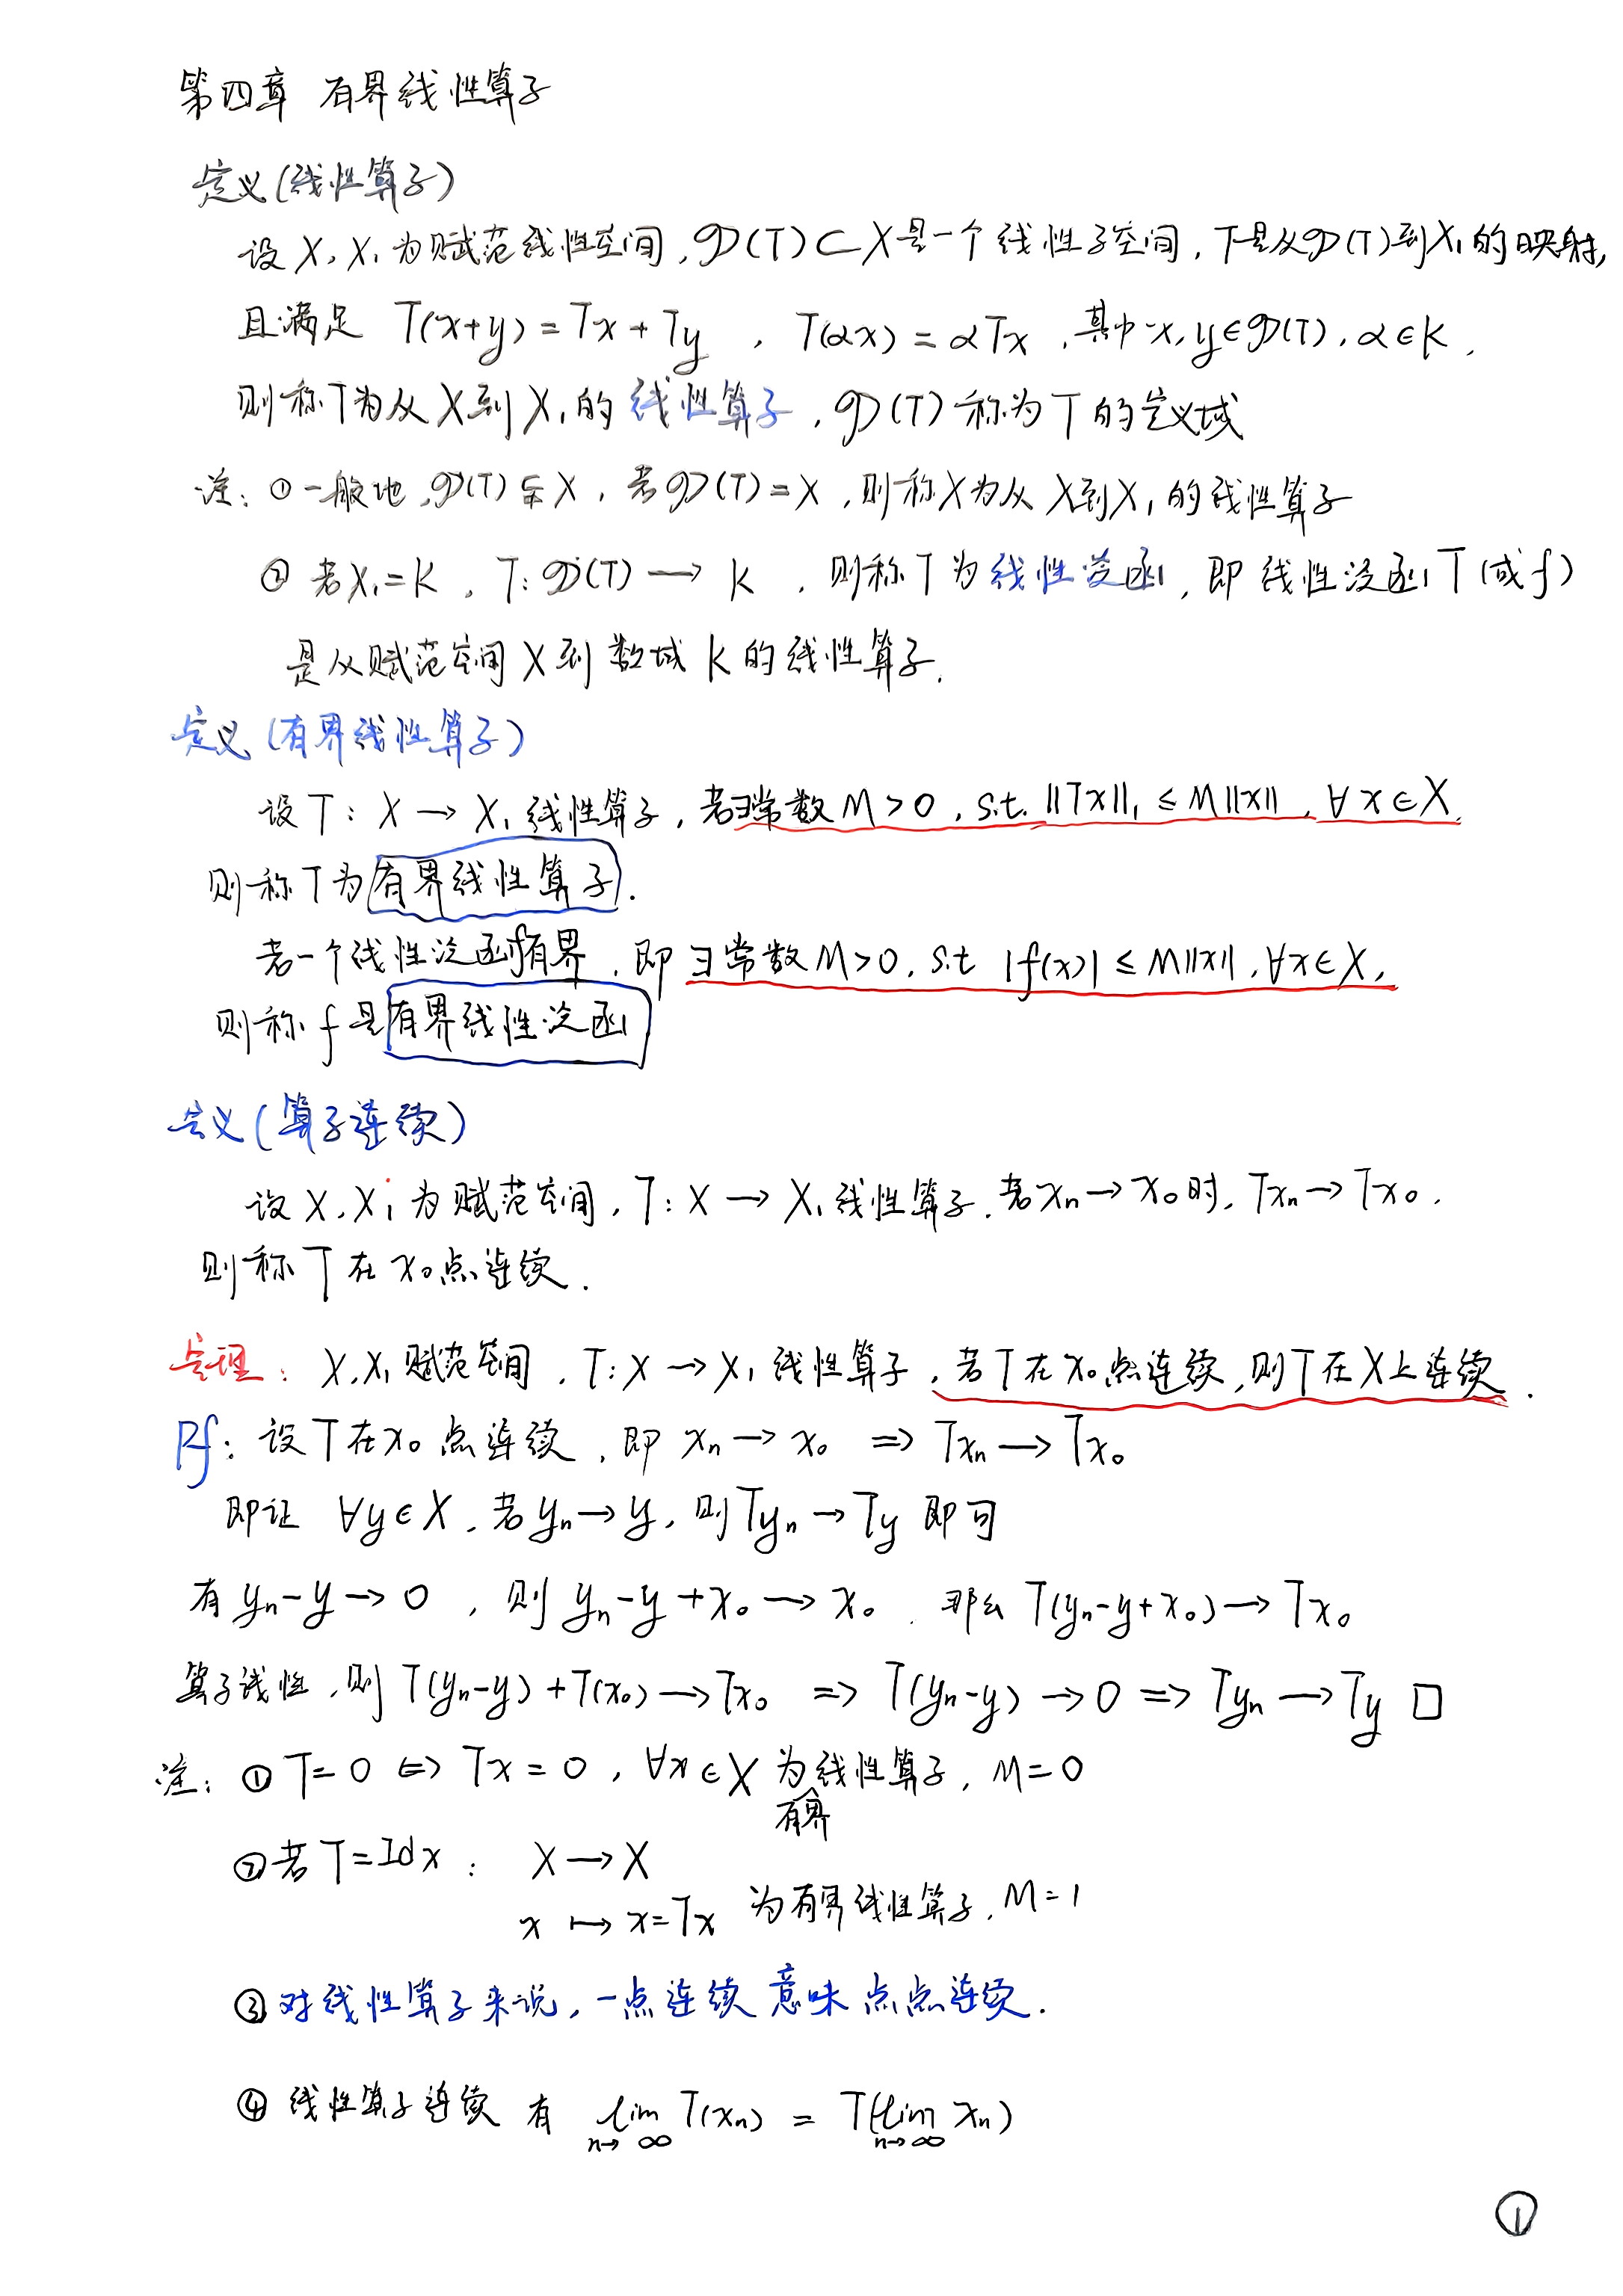 第四章 有界线性算子
定义(线性算子)
设 X, X₁ 为赋范线性空间, 𝒟(T)⊂X是一个线性子空间, T是从𝒟(T)到X₁的映射,
且满足 T(x+y)=Tx+Ty , T(αx)=αTx ,其中x,y∈𝒟(T), α∈K ,
则称T为从X到X₁的线性算子, 𝒟(T)称为T的定义域
注: ① 一般地, 𝒟(T)⊊X, 若𝒟(T)=X, 则称X为从X到X₁的线性算子
② 若X₁=K, T: 𝒟(T) → K , 则称T为线性泛函, 即线性泛函T(或f)
是从赋范空间X到数域K的线性算子.
定义(有界线性算子)
设T: X → X₁ 线性算子, 若∃常数M>0, s.t. ||Tx||₁ ≤ M||x||, ∀x∈X,
则称T为有界线性算子.
若一个线性泛函f有界, 即∃常数M>0, s.t |f(x)| ≤ M||x||, ∀x∈X,
则称f是有界线性泛函
定义(算子连续)
设X,X₁为赋范空间, T: X → X₁线性算子. 若xₙ→x₀时, Txₙ→Tx₀,
则称T在x₀点连续.
定理: X,X₁赋范空间, T: X→X₁线性算子, 若T在x₀点连续,则T在X上连续.
Pf: 设T在x₀点连续, 即 xₙ→x₀ ⇒ Txₙ→Tx₀
即证 ∀y∈X, 若yₙ→y, 则Tyₙ→Ty即可
有yₙ-y→0 , 则 yₙ-y+x₀→x₀ . 那么 T(yₙ-y+x₀)→Tx₀
算子线性, 则T(yₙ-y)+T(x₀)→Tx₀ ⇒ T(yₙ-y)→0 ⇒ Tyₙ→Ty □
注: ① T=0 ⇔ Tx=0, ∀x∈X 为有界线性算子, M=0
② 若T=Idx : X→X
x ↦ x=Tx 为有界线性算子, M=1
③ 对线性算子来说, 一点连续意味点点连续.
④ 线性算子连续 有 lim_{n→∞} T(xₙ) = T(lim_{n→∞} xₙ)
①